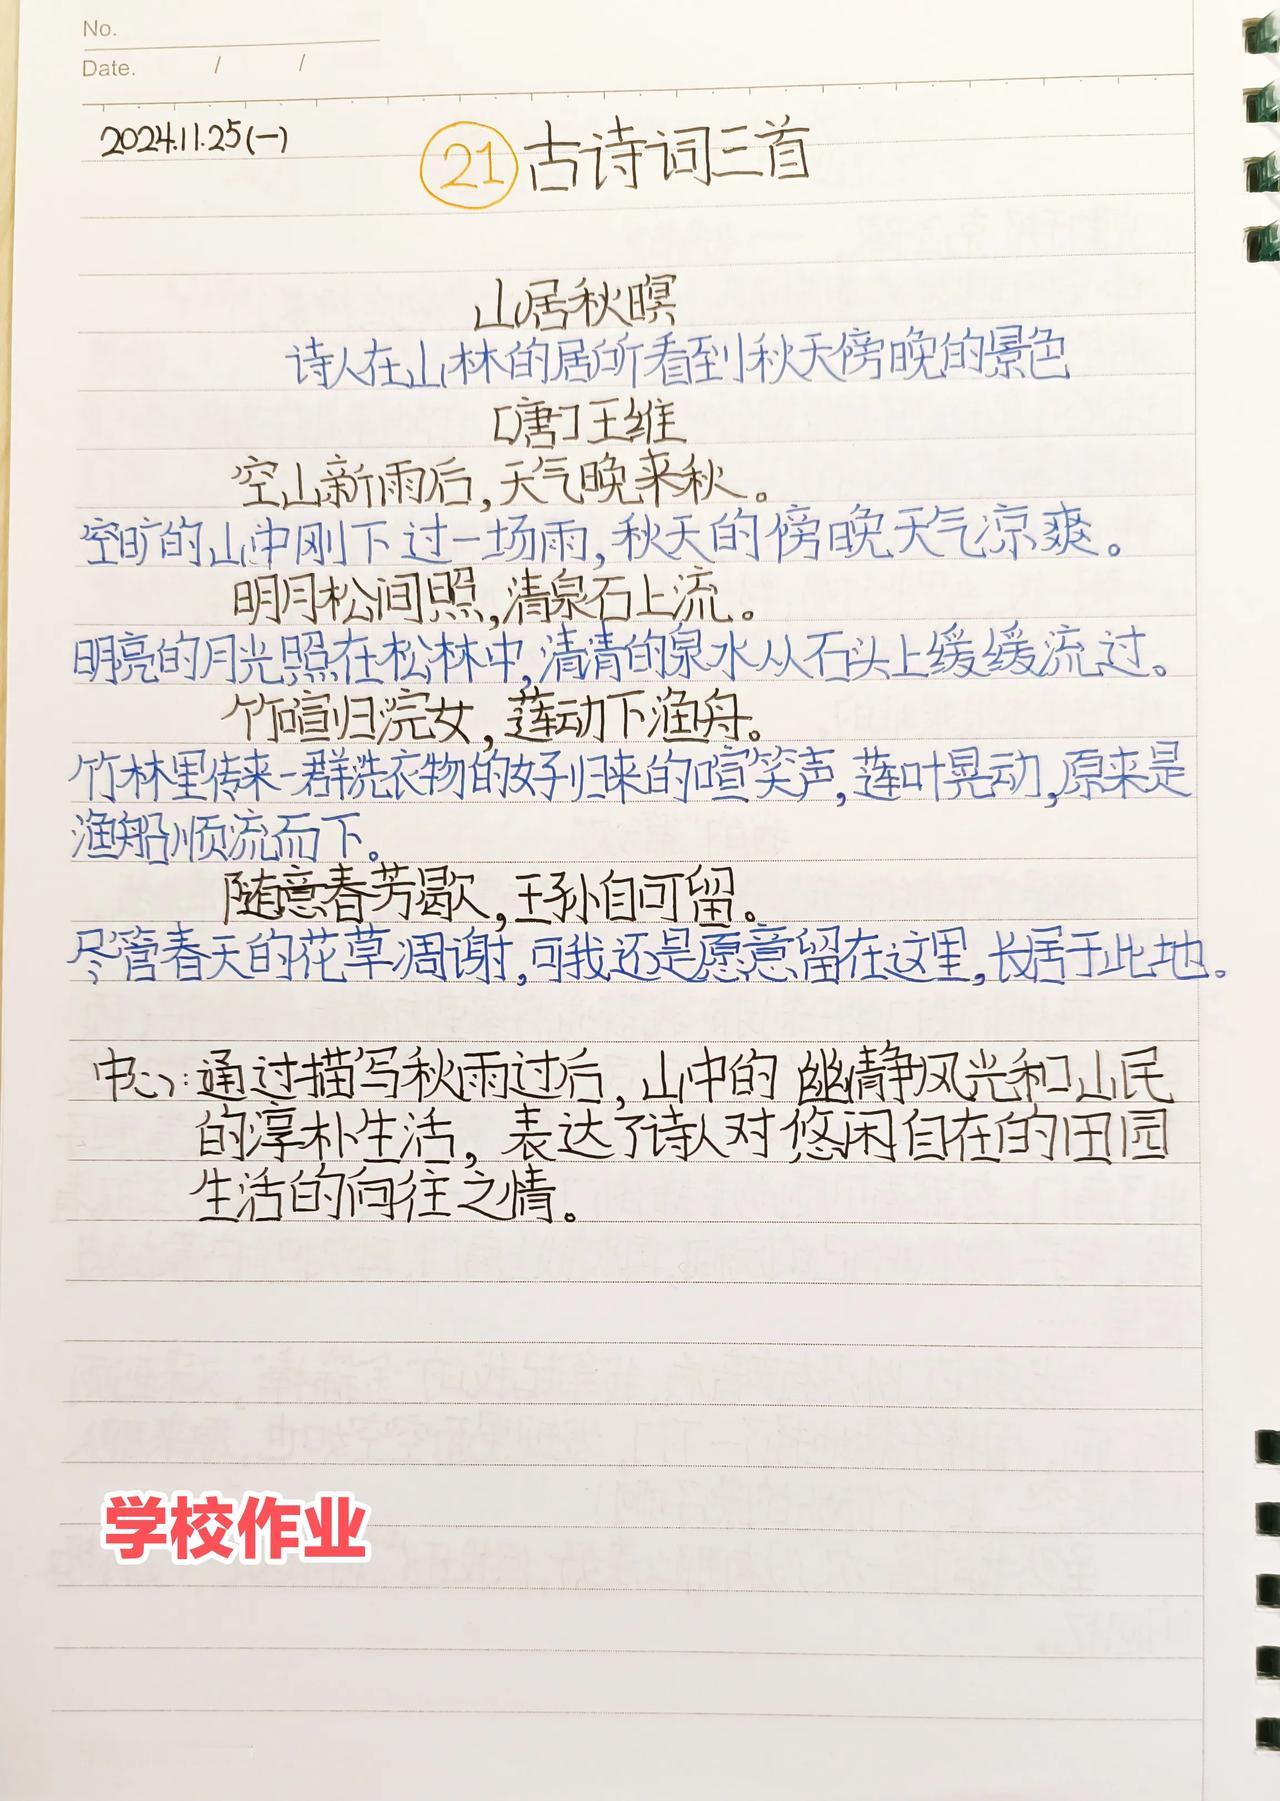 No.
Date. / /
2024.11.25(一)
21 古诗词三首
山居秋暝
诗人在山林的居所看到秋天傍晚的景色
[唐]王维
空山新雨后,天气晚来秋。
空旷的山中刚下过一场雨,秋天的傍晚天气凉爽。
明月松间照,清泉石上流。
明亮的月光照在松林中,清清的泉水从石头上缓缓流过。
竹喧归浣女,莲动下渔舟。
竹林里传来一群洗衣物的女子归来的喧笑声,莲叶晃动,原来是
渔船顺流而下。
随意春芳歇,王孙自可留。
尽管春天的花草凋谢,可我还是愿意留在这里,长居于此地。
中心:通过描写秋雨过后,山中的幽静风光和山民
的淳朴生活,表达了诗人对悠闲自在的田园
生活的向往之情。
学校作业